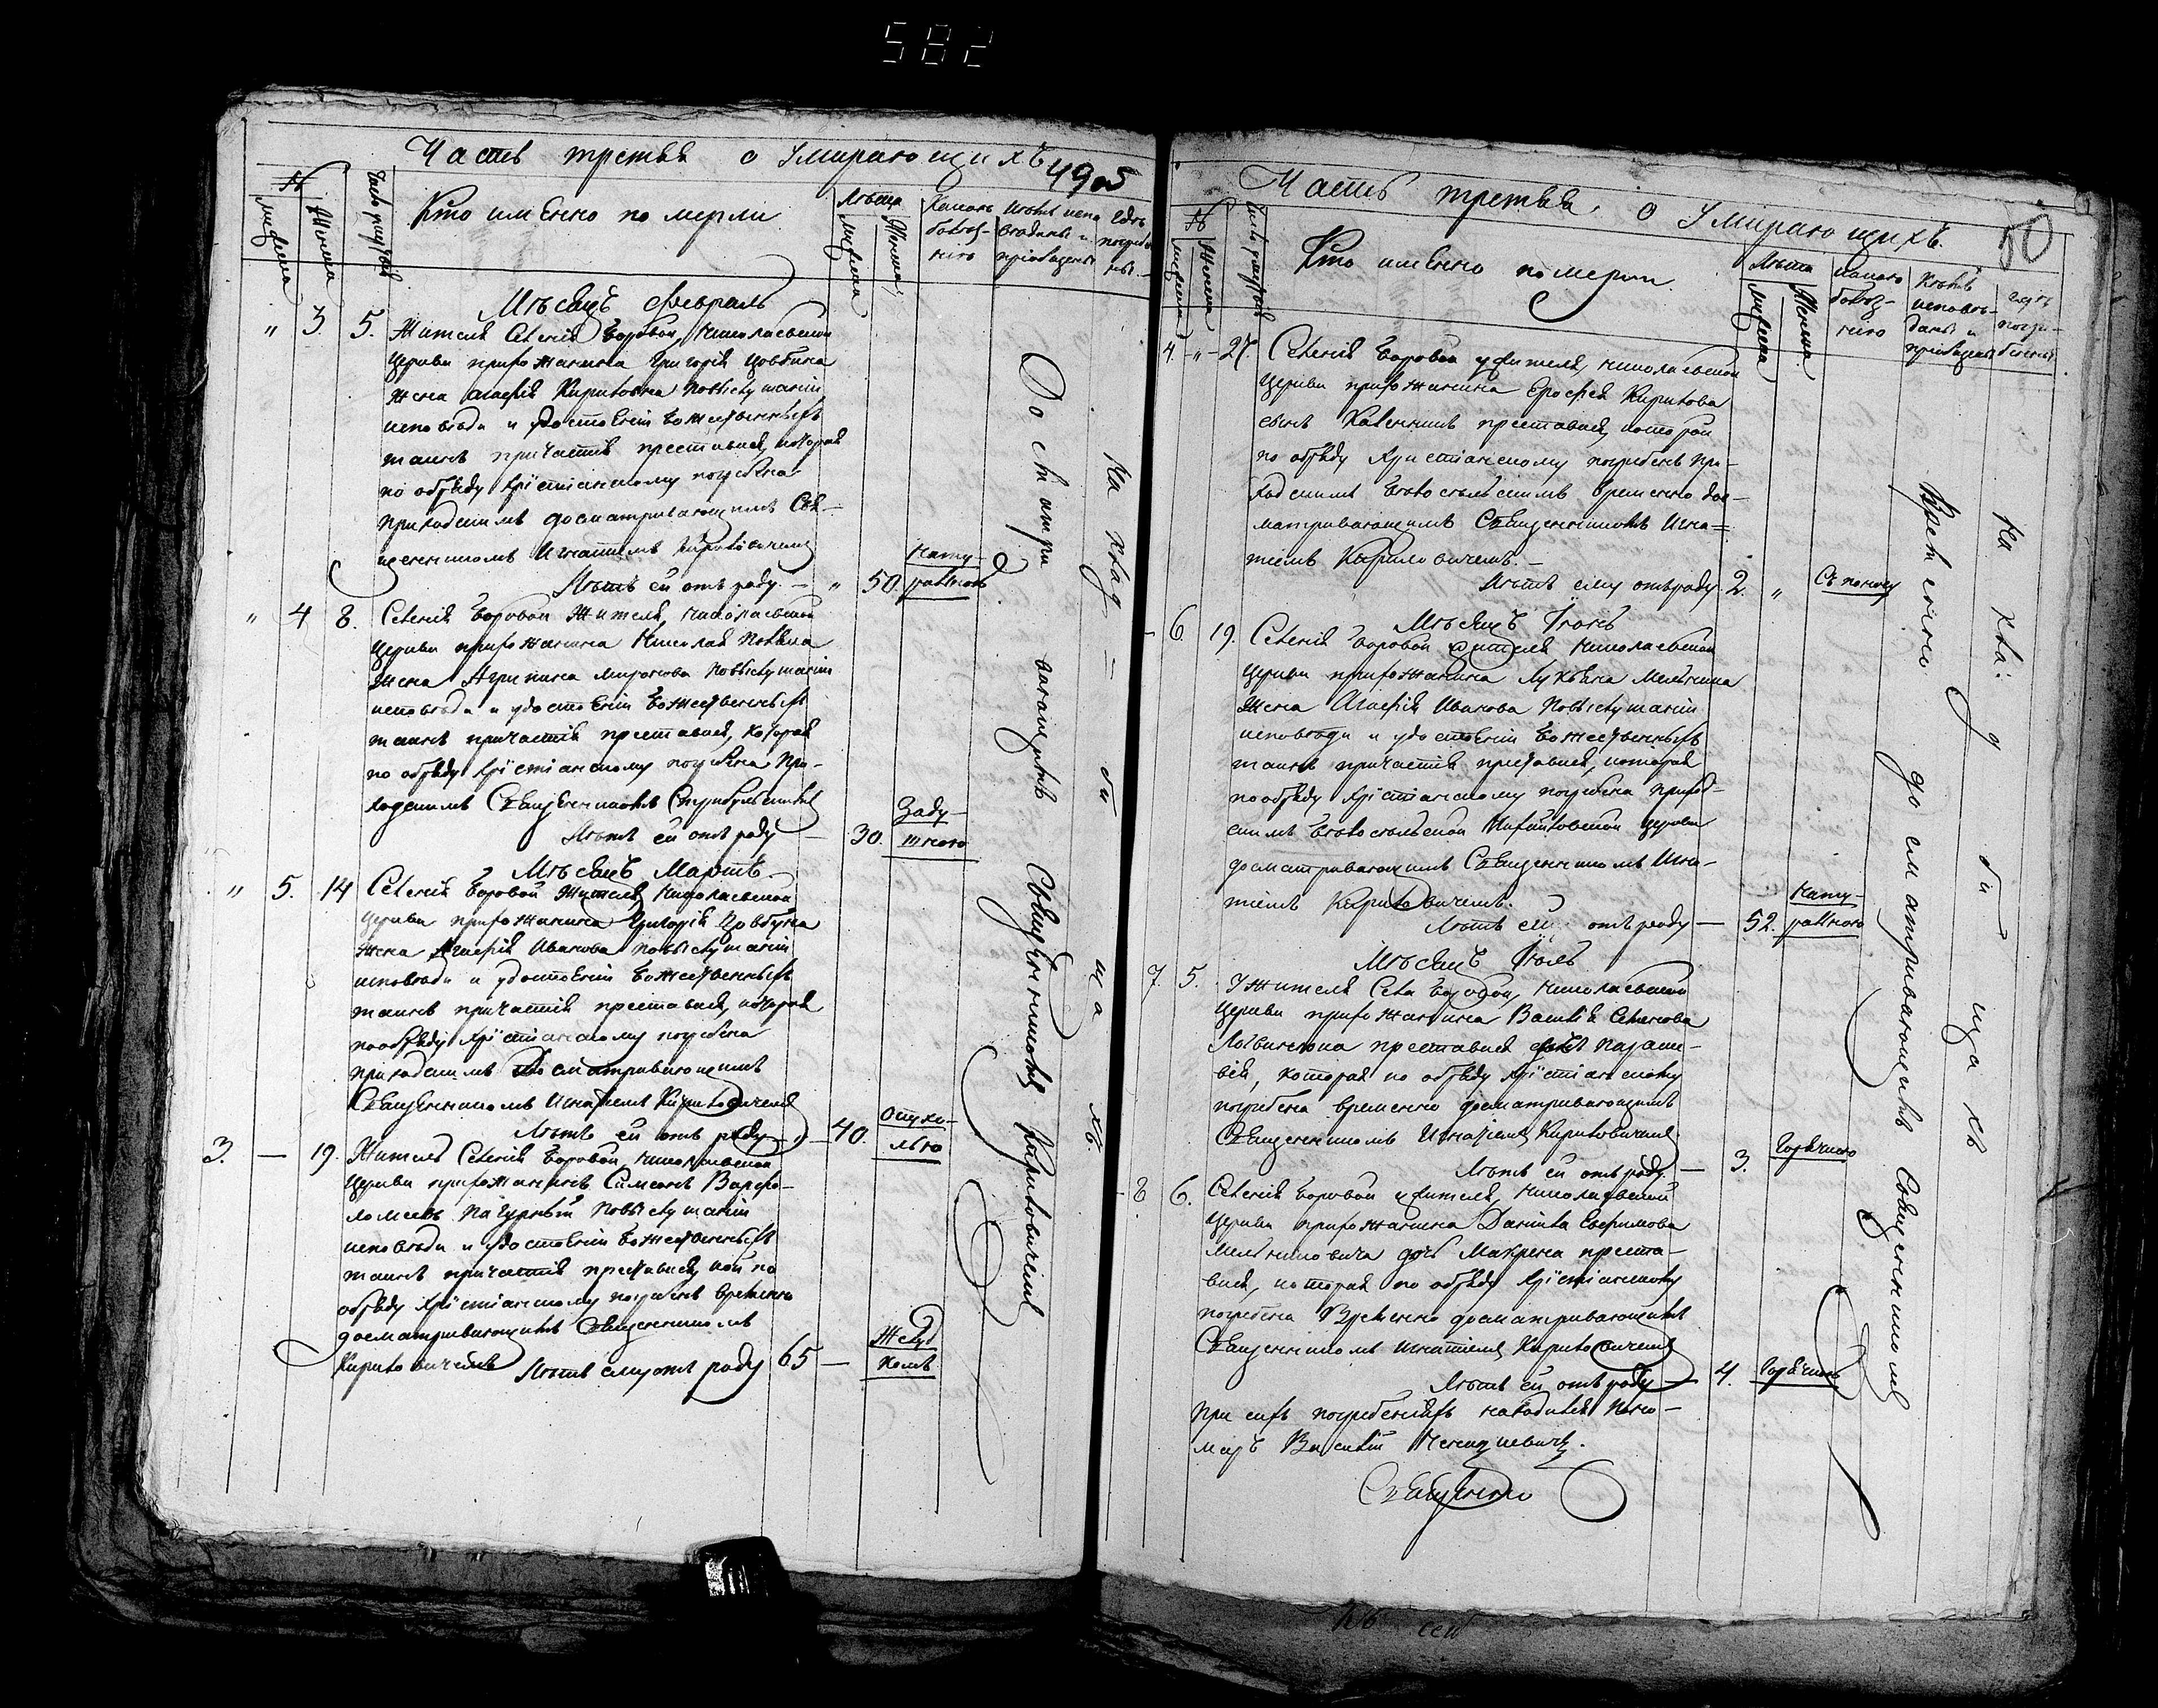 582
Часть третья о Умирающихъ
49об
№
мужеска
Женска
Число умершихъ
Кто имЕнно померли
Лѣта
мужеска
Женска
Какою болѣзнію
Кѣмъ исповѣданы и пріобщены
Гдѣ погребены
Мѣсяцъ Февраль
" 3. 5. Жителя Селенія Боровой, Николаевской
Церкви прихожанина Григорія Цовбуна
жена Агафія Кирилловна по выслушаніи
исповѣди и удостоЕніи Божественныхъ
таинъ причастія преставися, которая
по обряду Хрістіанскому погребена
приходскимъ досматривающимъ Свя-
щенникомъ Игнатіемъ Кириловичемъ
Лѣтъ ей отъ роду — " 50. Нату-
ральною
" 4 8. Селенія Боровой Жителя, Николаевской
Церкви прихожанина Николая
жена Агрипина Миронова по выслушаніи
исповѣди и удостоЕніи Божественныхъ
таинъ причастія преставися, которая
по обряду Хрістіанскому погребена При-
ходскимъ СвященникомЪ
Лѣтъ ей отъ роду — 30. Заду-
шною
Мѣсяцъ Мартъ
" 5. 14 Селенія Боровой Жителя Николаевской
Церкви прихожанина Григорія Цовбуна
жена Агафія Иванова по выслушаніи
исповѣди и удостоЕніи Божественныхъ
таинъ причастія преставися, которая
по обряду Хрістіанскому погребена
приходскимъ Досматривающимъ
Священникомъ Игнатіемъ Кириловичемъ
Лѣтъ ей отъ роду — " — 40. Опухо-
лью
3. — 19. Житель Селенія Боровой Николаевской
Церкви прихожанинъ Симеонъ Варфо-
ломеевъ по выслушаніи
исповѣди и удостоЕніи Божественныхъ
таинъ причастія преставися, кой по
обряду Хрістіанскому погребенъ временно
досматривающимъ Священникомъ
Кириловичемъ Лѣтъ ему отъ роду 65 — Желуд
комъ
Досматривающимъ Священникомъ Кириловичемъ
На клад- би ща хъ.
Часть третья, о Умирающихъ.
50
№
мужеска
Женска
Число умершихъ
Кто имЕнно померли
Лѣта
мужеска
Женска
Какою болѣзнію
Кѣмъ исповѣданы и пріобщены
гдѣ погребены
4. — " — 27. Селенія Боровой жителя, Николаевской
Церкви прихожанина Ерофея Кирилова
сынъ преставися, который
по обряду Христіанскому погребенъ при-
ходскимъ временно дос-
матривающимъ Священникомъ Игна=
тіемъ Кириловичемъ. —
Лѣтъ ему отъ роду 2. "
Мѣсяцъ Іюнь
- 6. 19. Селенія Боровой жителя Николаевской
Церкви прихожанина Лукьяна Мельника
жена Агафія Иванова по выслушаніи
исповѣди и удостоЕніи Божественныхъ
таинъ причастія преставися, которая
по обряду Хрістіанскому погребена приход-
скимъ церкви
досматривающимъ Священникомъ Игна-
тіемъ Кириловичемъ.
Лѣтъ ей отъ роду — 52. Нату-
ральною
Мѣсяцъ Іюль
7. 5. У жителя Села Боровой, Николаевской
Церкви прихожанина Василія Семенова
преставися дочь Параске-
вія, которая по обряду Хрістіанскому
погребена временно досматривающимъ
Священникомъ Игнатіемъ Кириловичемъ.
Лѣтъ ей отъ роду. — 3. Горячкою
- 8 6. Селенія Боровой жителя, Николаевской
Церкви прихожанина Даниила Ефимова
дочь Макрина преста-
вися, которая по обряду Хрістіанскому
погребена Временно досматривающимъ
Священникомъ Игнатіемъ Кириловичемъ
Лѣтъ ей отъ роду — 4. Горячкою
При сихъ погребеніяхъ находился Поно-
марь Василій
Священно
Временно досматривающимъ Священникомъ
На кла- д би ща хъ